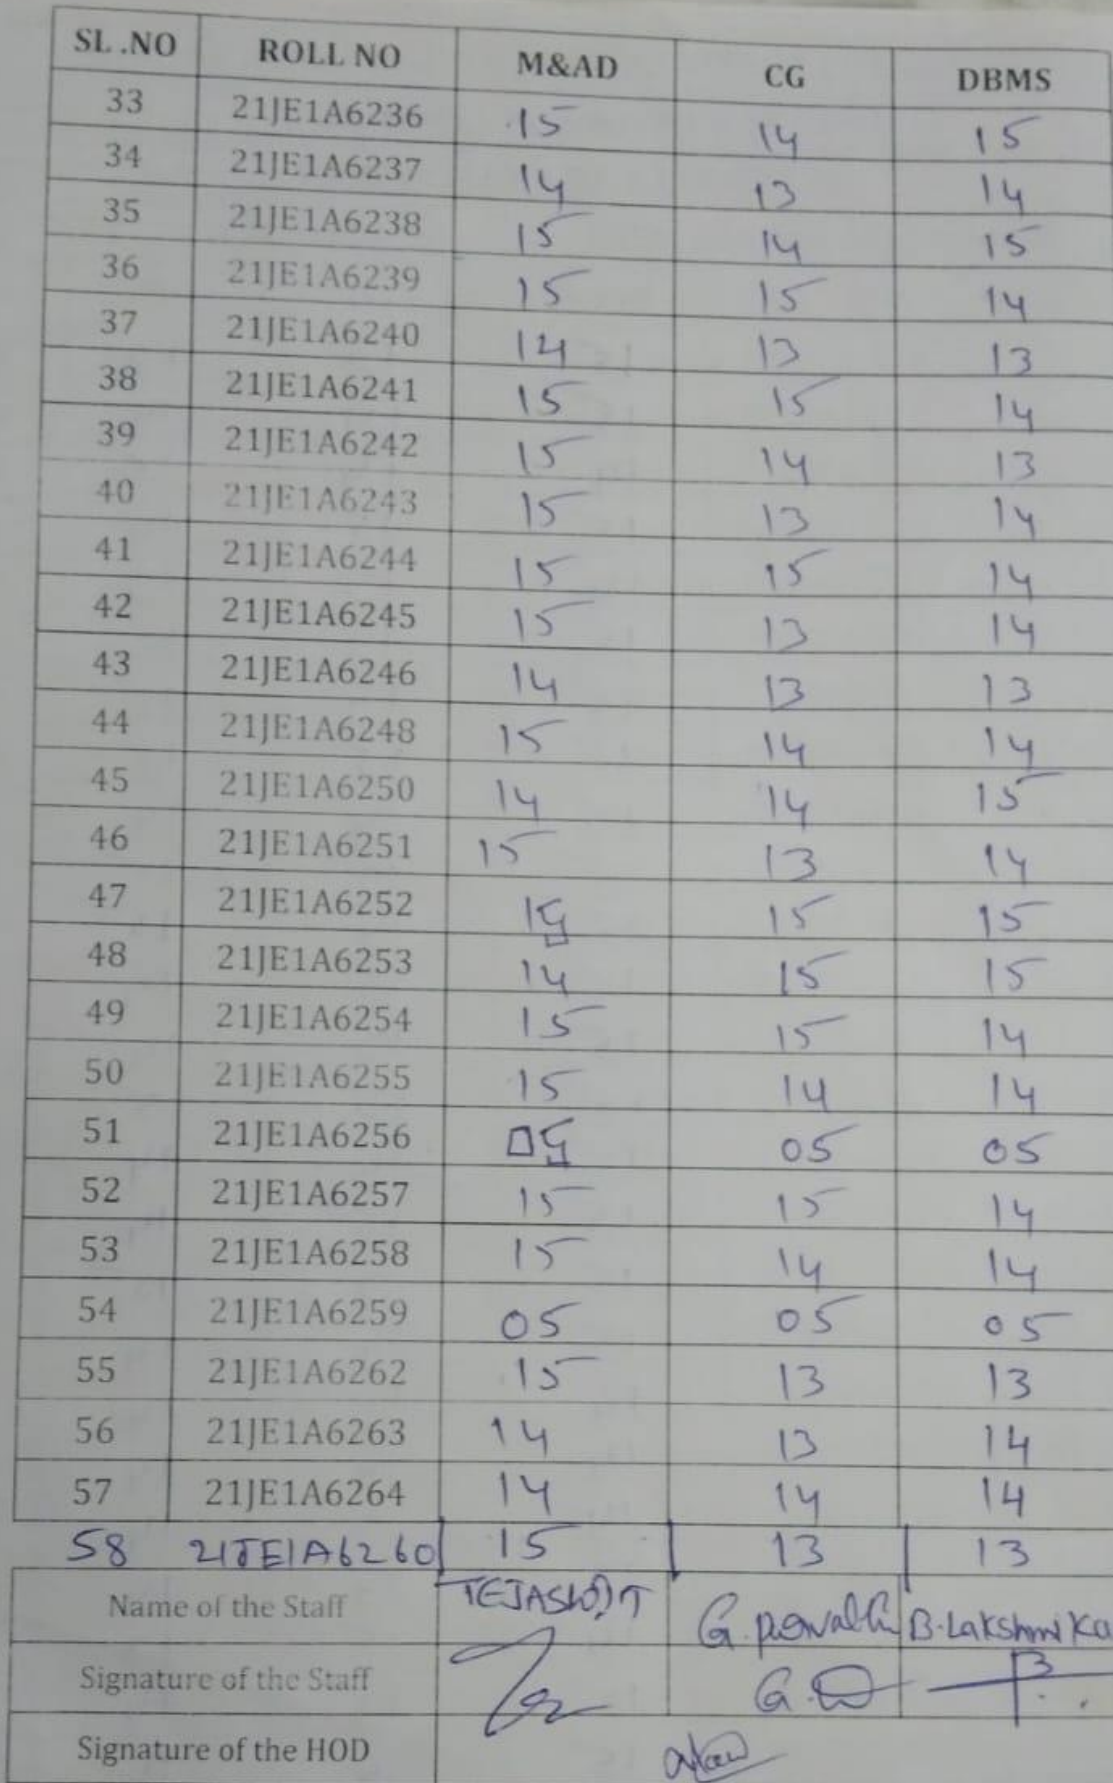 SL .NO ROLL NO M&AD CG DBMS
33 21JE1A6236 15 14 15
34 21JE1A6237 14 13 14
35 21JE1A6238 15 14 15
36 21JE1A6239 15 15 14
37 21JE1A6240 14 13 13
38 21JE1A6241 15 15 14
39 21JE1A6242 15 14 13
40 21JE1A6243 15 13 14
41 21JE1A6244 15 15 14
42 21JE1A6245 15 13 14
43 21JE1A6246 14 13 13
44 21JE1A6248 15 14 14
45 21JE1A6250 14 14 15
46 21JE1A6251 15 13 14
47 21JE1A6252 15 15 15
48 21JE1A6253 14 15 15
49 21JE1A6254 15 15 14
50 21JE1A6255 15 14 14
51 21JE1A6256 05 05 05
52 21JE1A6257 15 15 14
53 21JE1A6258 15 14 14
54 21JE1A6259 05 05 05
55 21JE1A6262 15 13 13
56 21JE1A6263 14 13 14
57 21JE1A6264 14 14 14
58 21JE1A6260 15 13 13
Name of the Staff G. B.Lakshmi Ka
Signature of the Staff
Signature of the HOD